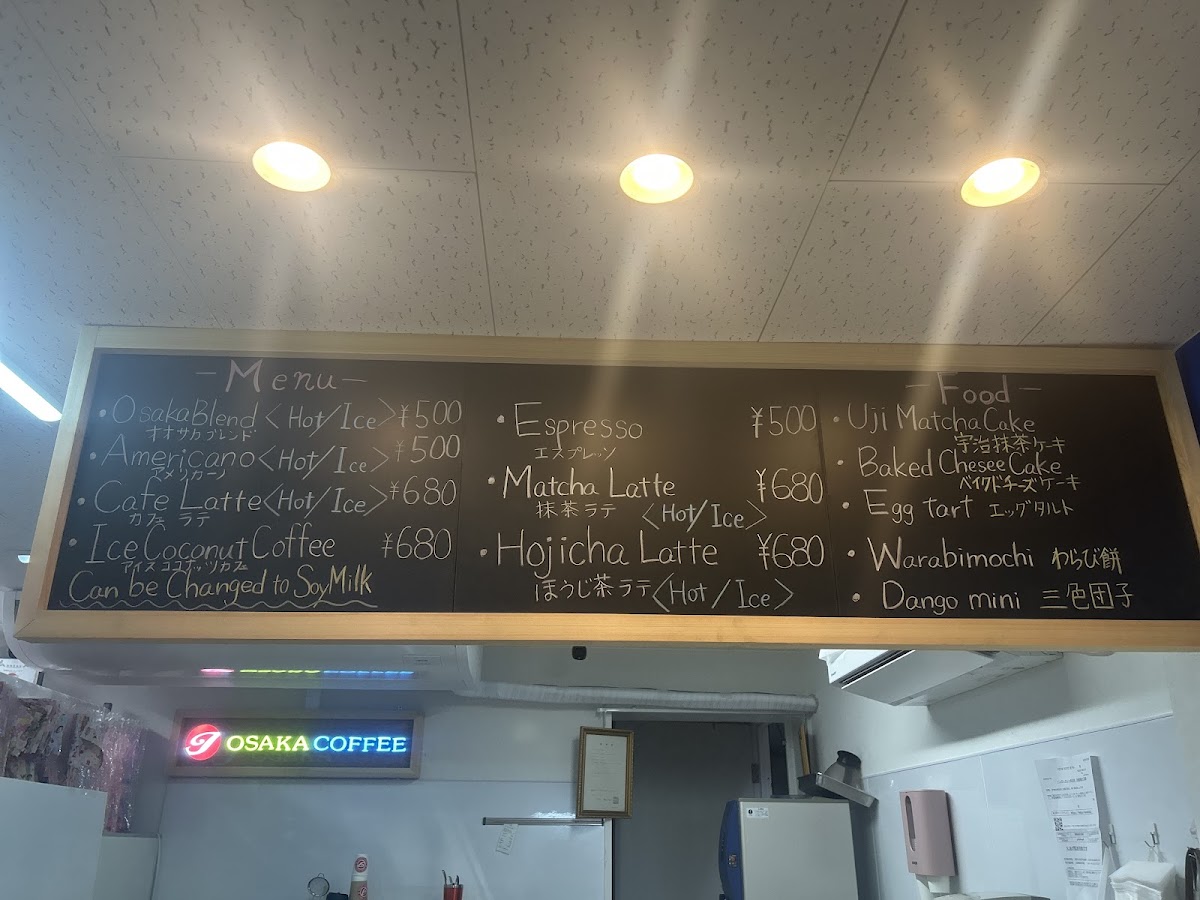 -Menu-
・OsakaBlend <Hot/Ice> ¥500
オオサカブレンド
・Americano <Hot/Ice> ¥500
アメリカーノ
・Cafe Latte <Hot/Ice> ¥680
カフェ ラテ
・Ice Coconut Coffee ¥680
アイスココナッツカフェ
Can be Changed to Soy Milk
・Espresso ¥500
エスプレッソ
・Matcha Latte ¥680
抹茶ラテ <Hot/Ice>
・Hojicha Latte ¥680
ほうじ茶ラテ <Hot/Ice>
-Food-
・Uji Matcha Cake
宇治抹茶ケーキ
・Baked Chesee Cake
ベイクドチーズケーキ
・Egg tart エッグタルト
・Warabimochi わらび餅
・Dango mini 三色団子
OSAKA COFFEE